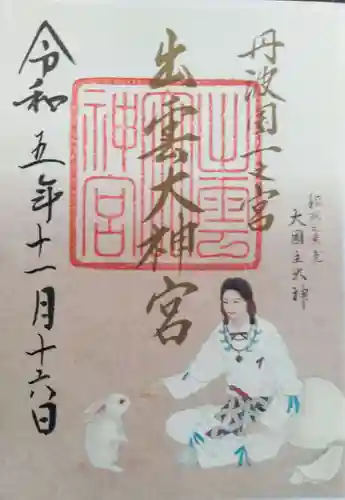 丹波国一之宮
出雲大神宮
令和五年十一月十六日
大国主大神
出雲
神宮